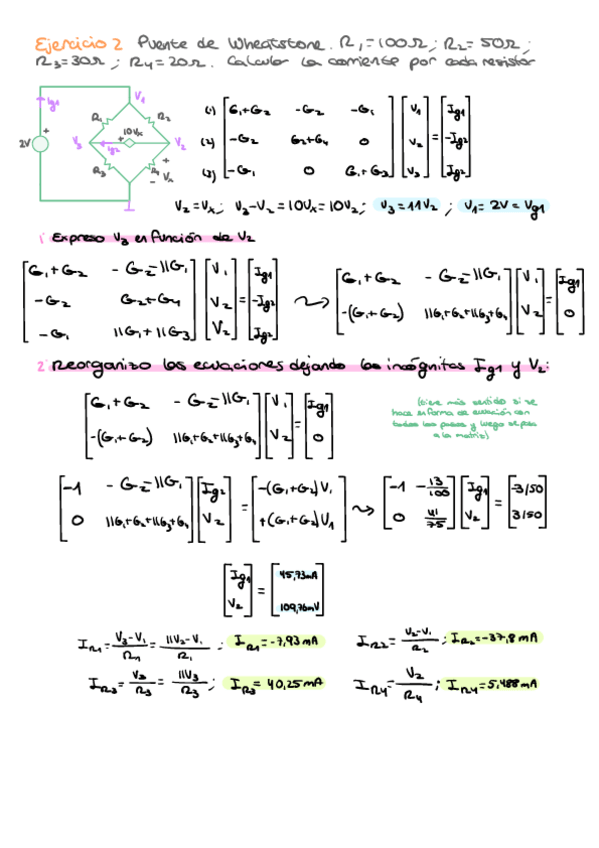 Ejercicio 2 Puente de Wheatstone. R₁=100Ω; R₂=50Ω;
R₃=30Ω; R₄=20Ω. Calcular la corriente por cada resistor
Ig1
2V
+
R₁
V₁
R₂
10Vx
V₃
Ig2
V₂
R₃
R₄
+
Vx
-
(1) [G₁+G₂ -G₂ -G₁] [V₁] [Ig1]
(2) [-G₂ G₂+G₄ 0] [V₂] = [-Ig2]
(3) [-G₁ 0 G₁+G₃] [V₃] [Ig2]
V₂=Vx; V₃-V₂=10Vx=10V₂; V₃=11V₂; V₁=2V=Vg1
1° Expreso V₃ en función de V₂
[G₁+G₂ -G₂-11G₁] [V₁] [Ig1] [G₁+G₂ -G₂-11G₁] [V₁] [Ig1]
[-G₂ G₂+G₄] [V₂] = [-Ig2] ⇝ [-(G₁+G₂) 11G₁+G₂+11G₃+G₄] [V₂] = [0]
[-G₁ 11G₁+11G₃] [V₂] [Ig2]
2° Reorganizo las ecuaciones dejando las incógnitas Ig1 y V₂:
[G₁+G₂ -G₂-11G₁] [V₁] [Ig1]
[-(G₁+G₂) 11G₁+G₂+11G₃+G₄] [V₂] = [0]
(tiene más sentido si se
hace en forma de ecuación con
todos los pasos y luego se pasa
a la matriz)
[-1 -G₂-11G₁] [Ig2] [-(G₁+G₂)V₁] [-1 -13/100] [Ig1] [-3/50]
[0 11G₁+G₂+11G₃+G₄] [V₂] = [+(G₁+G₂)V₁] ⇝ [0 41/75] [V₂] = [3/50]
[Ig1] [45,73mA]
[V₂] = [109,76mV]
I_R1=(V₃-V₁)/R₁=(11V₂-V₁)/R₁; I_R1=-7,93 mA
I_R2=(V₂-V₁)/R₂; I_R2=-37,8 mA
I_R3=V₃/R₃=11V₂/R₃; I_R3=40,25 mA
I_R4=V₂/R₄; I_R4=5,488 mA